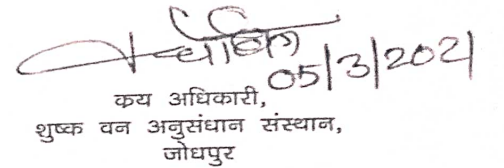 05/3/2021
कय अधिकारी,
शुष्क वन अनुसंधान संस्थान,
जोधपुर